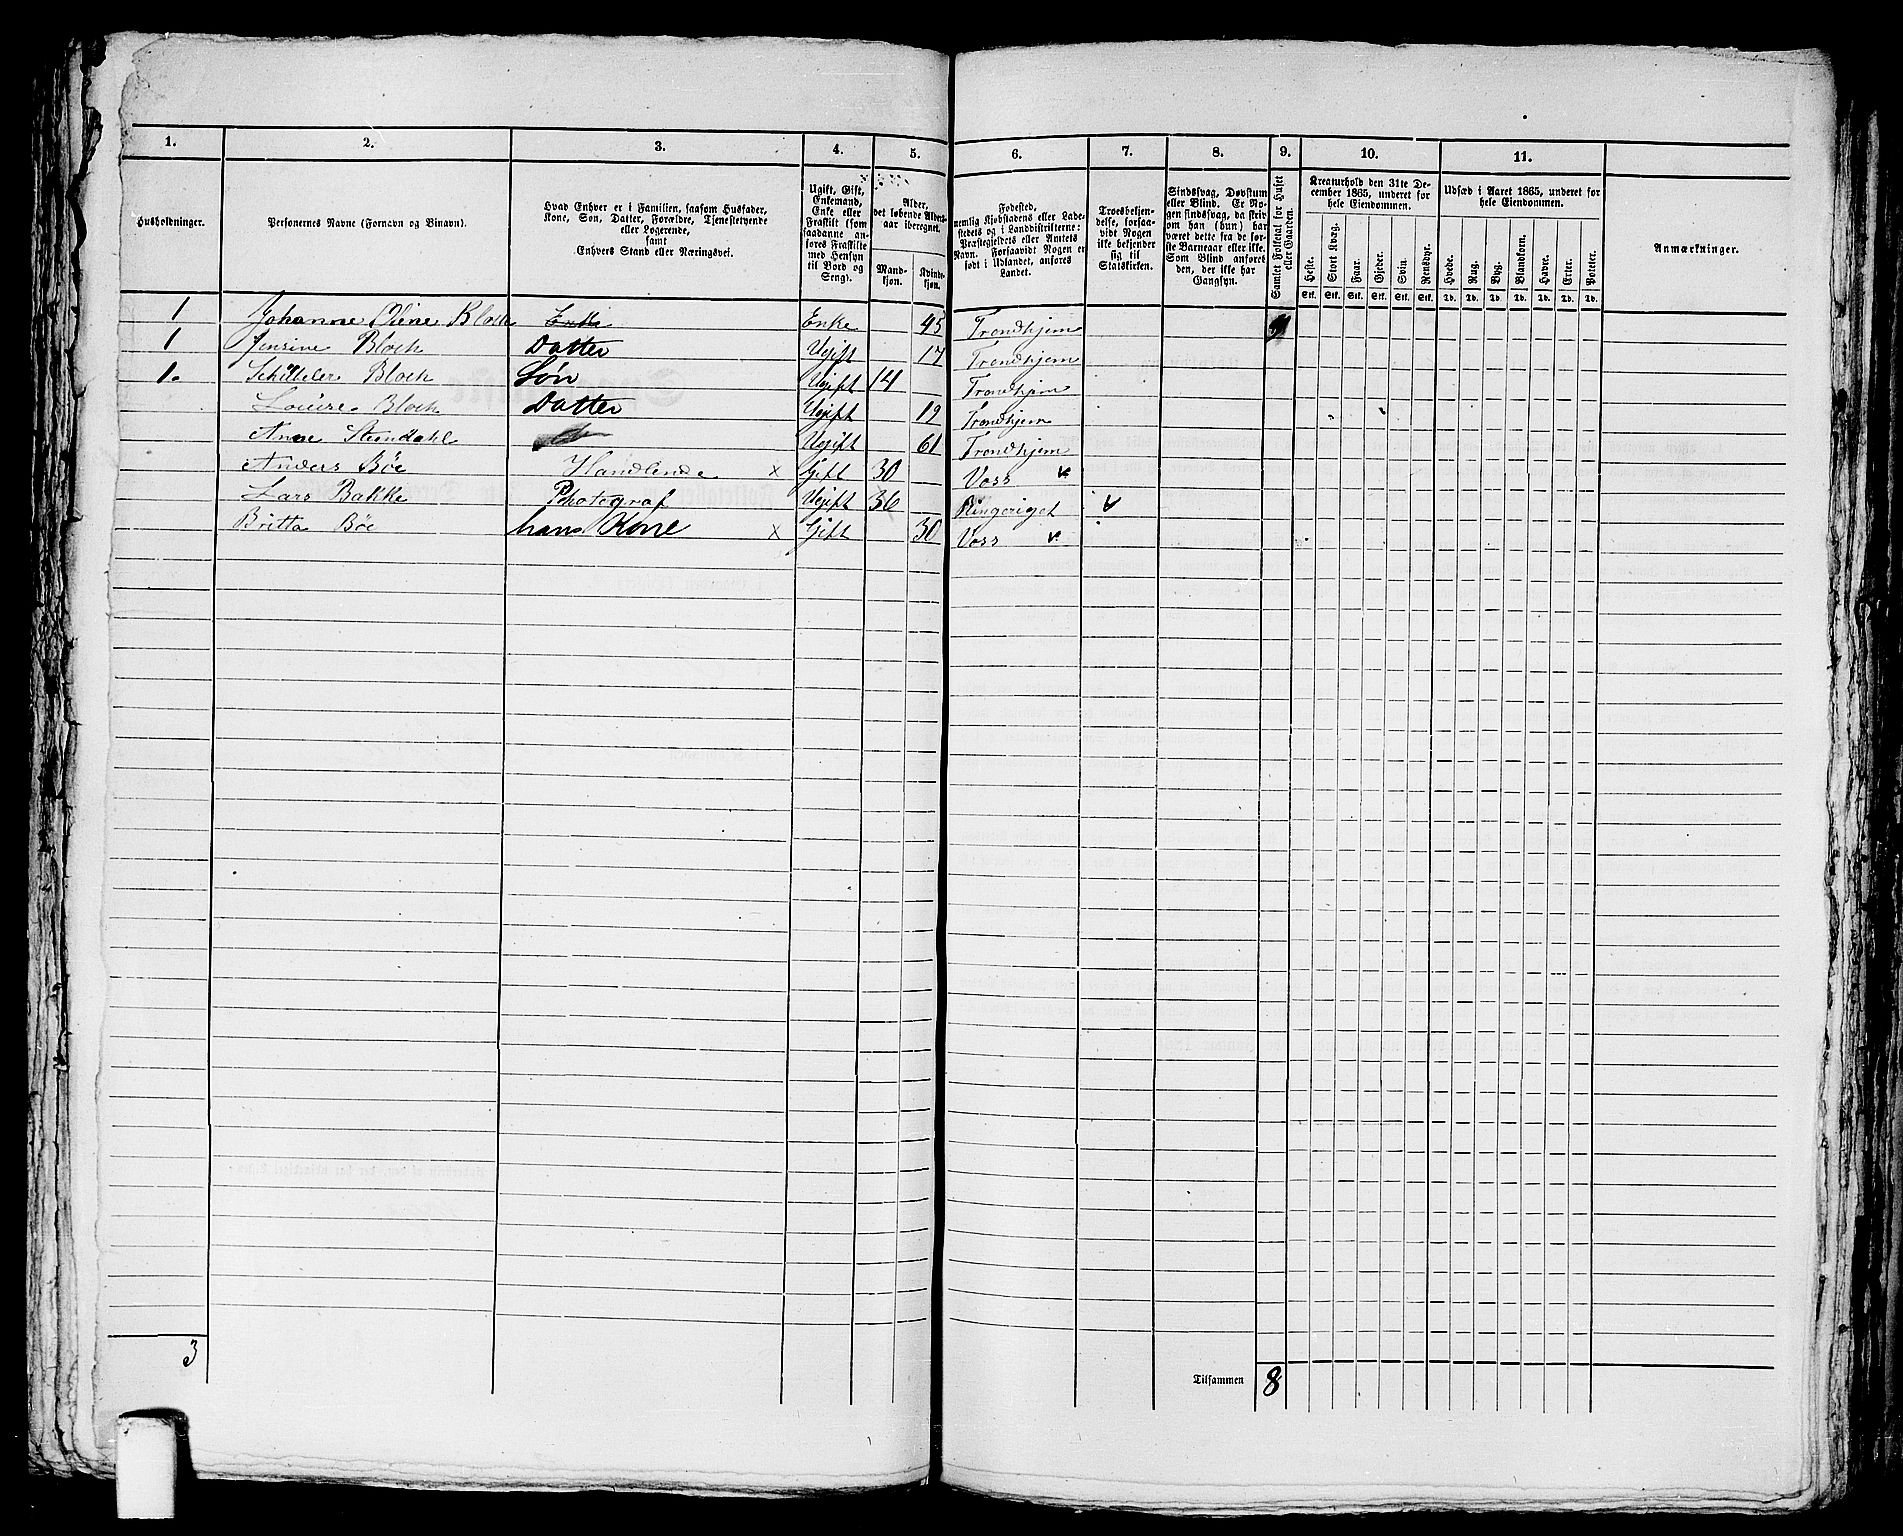 1. 2. 3. 4. 5. 6. 7. 8. 9. 10. 11.
Husholdninger.
Personernes Navne (Fornavn og Binavn).
Hvad Enhver er i Familien, saasom Husfader,
Kone, Søn, Datter, Forældre, Tjenestetyende
eller Logerende,
samt
Enhvers Stand eller Næringsvei.
Ugift, Gift,
Enkemand,
Enke eller
Fraskilt (som
saadanne an-
føres Fraskilte
med Hensyn
til Bord og
Seng).
Alder,
det løbende Alders-
aar iberegnet.
Mand-
kjøn.
Kvinde-
kjøn.
Fødested,
nemlig Kjøbstadens eller Lade-
stedets og i Landdistrikterne:
Præstegjeldets eller Amtets
Navn. Forsaavidt Nogen er
født i Udlandet, anføres
Landet.
Troesbekjen-
delse, forsaa-
vidt Nogen
ikke bekjender
sig til
Statskirken.
Sindssvag, Døvstum
eller Blind. Er No-
gen sindssvag, da skriv
om han (hun) har
været dette fra de før-
ste Barneaar eller ikke.
Som Blind anføres
den, der ikke har
Gangsyn.
Samlet Folketal for Huset
eller Gaarden.
Kreaturhold den 31te De-
cember 1865, underet for
hele Eiendommen.
Heste. Stort Kvæg. Faar. Gjeder. Svin. Rensdyr.
Stk. Stk. Stk. Stk. Stk. Stk.
Udsæd i Aaret 1865, underet for
hele Eiendommen.
Hvede. Rug. Byg. Blandkorn. Havre. Erter. Poteter.
Td. Td. Td. Td. Td. Td. Td.
Anmærkninger.
1 Johanne Oline Bloch Enke Enke 45 Trondhjem
1 Jensine Bloch Datter Ugift 17 Trondhjem
1. Schitteler Bloch Søn Ugift 14 Trondhjem
Louise Bloch Datter Ugift 19 Trondhjem
Anne Stendahl Ugift 61 Trondhjem
Anders Bøe Handlende x Gift 30 Voss v
Lars Bakke Photograf Ugift 36 Ringeriget v
Britta Bøe hans Kone x Gift 30 Voss v
3
Tilsammen 8